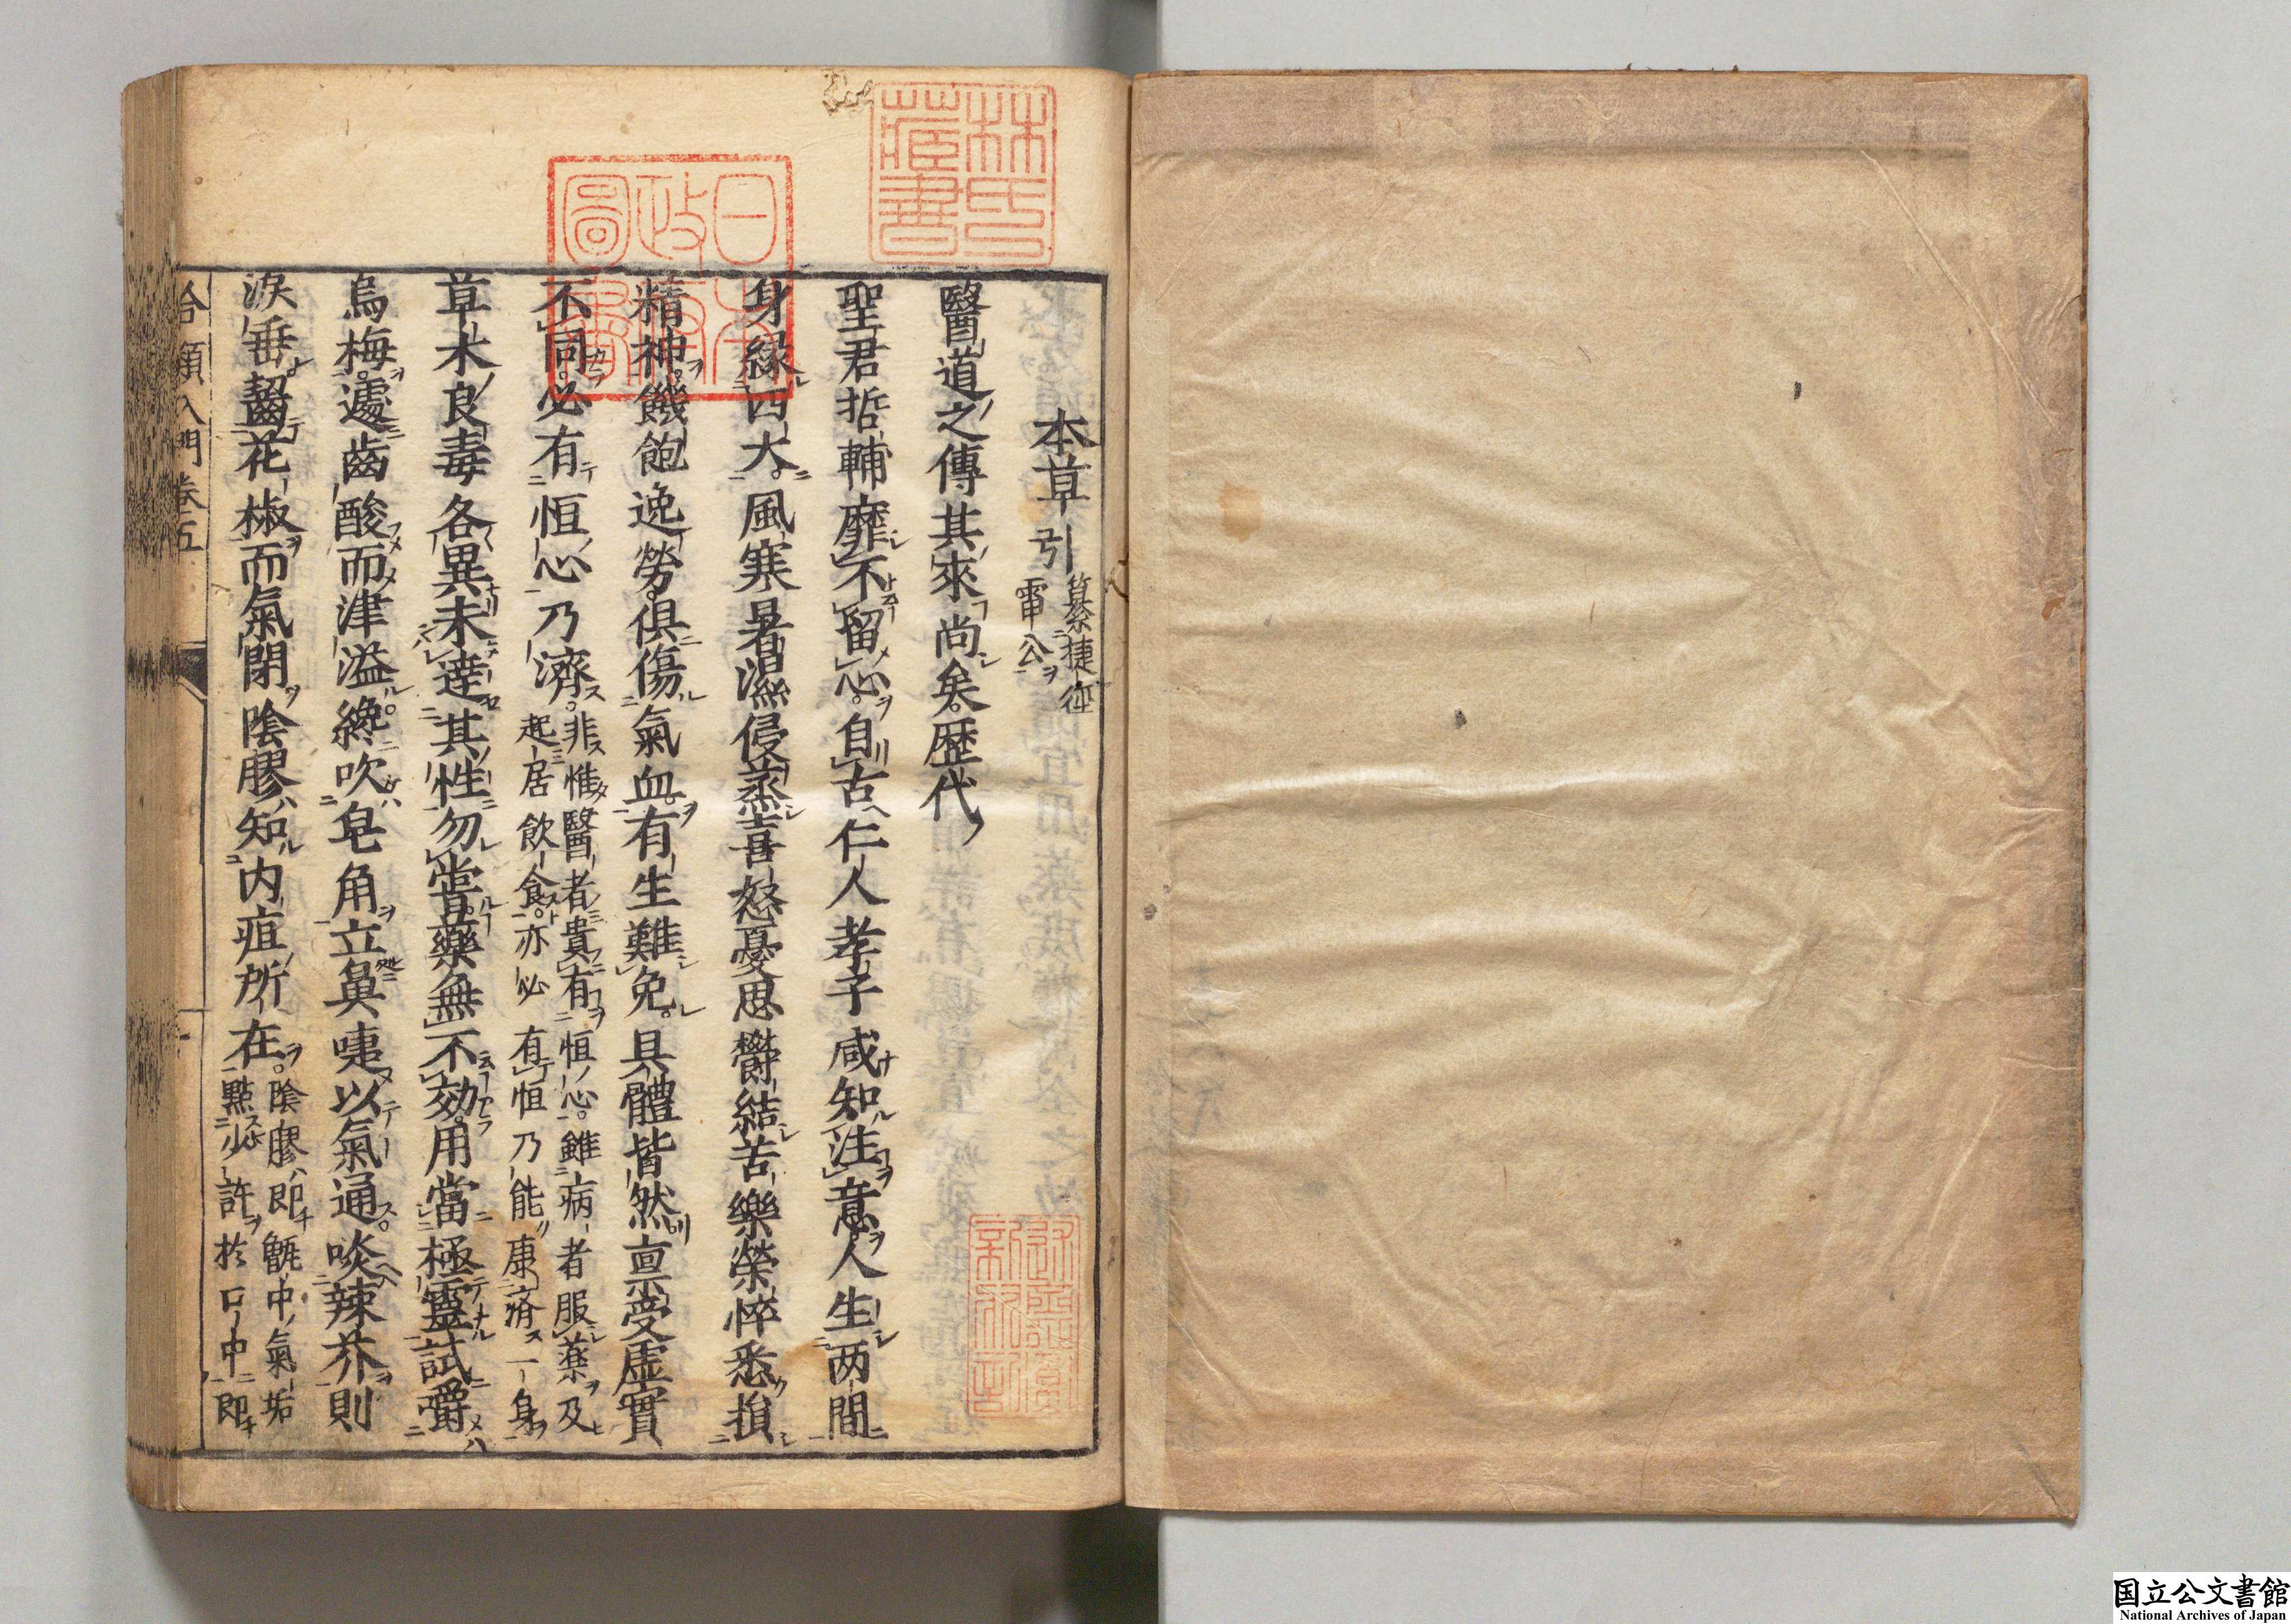 本草引 纂捷徑
雷公
醫道之傳其來尚矣歴代
聖君哲輔靡不留心自古仁人孝子咸知注意人生两間
身緣四大風寒暑濕侵蒸喜怒憂思鬱結苦樂榮悴悉損
精神饑飽逸勞俱傷氣血有生難免具體皆然禀受虛實
不同必有恒心乃濟 非惟醫者貴有恒心雖病者服藥及
起居飲食亦必有恒乃能康濟一身
草木良毒各異未達其性勿嘗藥無不効用當極靈試嚼
烏梅遽齒酸而津溢纔吹皂角立鼻嚏以氣通啖辣芥則
淚垂齧花椒而氣閉陰膠知内疽所在 陰膠即甑中氣垢
點少許於口中即
合類入門卷五
林氏藏書
日本政府圖書
国立公文書館
National Archives of Japan